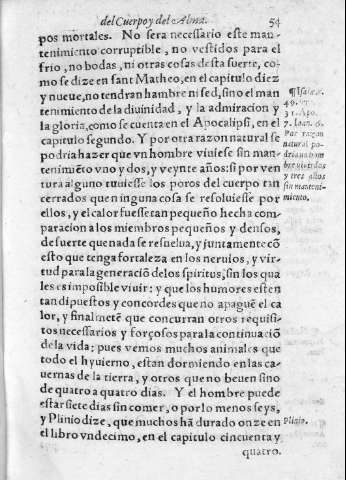 del Cuerpo y del Alma. 54
pos mortales. No sera necessario este man-
tenimiento corruptible, no vestidos para el
frio, no bodas, ni otras cosas desta suerte, co-
mo se dize en sant Matheo, en el capitulo diez
y nueue, no tendran hambre ni sed, sino el man
tenimiento de la diuinidad, y la admiracion y
la gloria, como se cuenta en el Apocalipsi, en el
capitulo segundo. Y por otra razon natural se
podria hazer que vn hombre viuiese sin man-
tenimiẽto vno y dos, y veynte años: si por ven
tura alguno tuuiesse los poros del cuerpo tan
cerrados que ninguna cosa se resoluiesse por
ellos, y el calor fuesse tan pequeño hecha com-
paracion a los miembros pequeños y densos,
de suerte que nada se resuelua, y juntamente cõ
esto que tenga fortaleza en los neruios, y vir-
tud para la generaciõ de los spiritus, sin los qua
les es imposible viuir: y que los humores esten
tan dispuestos y concordes que no apaguẽ el ca
lor, y finalmẽte que concurran otros requisi-
tos necessarios y forçosos para la continuaciõ
de la vida: pues vemos muchos animales que
todo el hyuierno, estan dormiendo en las ca-
uernas de la tierra, y otros que no beuen sino
de quatro a quatro dias. Y el hombre puede
estar siete dias sin comer, o por lo menos seys,
y Plinio dize, que muchos hã durado onze en
el libro vndecimo, en el capitulo cincuenta y
quatro.
¶ Isaiae.
49.
31. Apo.
7. Ioan. 6.
Por razon
natural po-
dria un hom
bre viuir dos
y tres años
sin manteni-
miento.
Plinio.